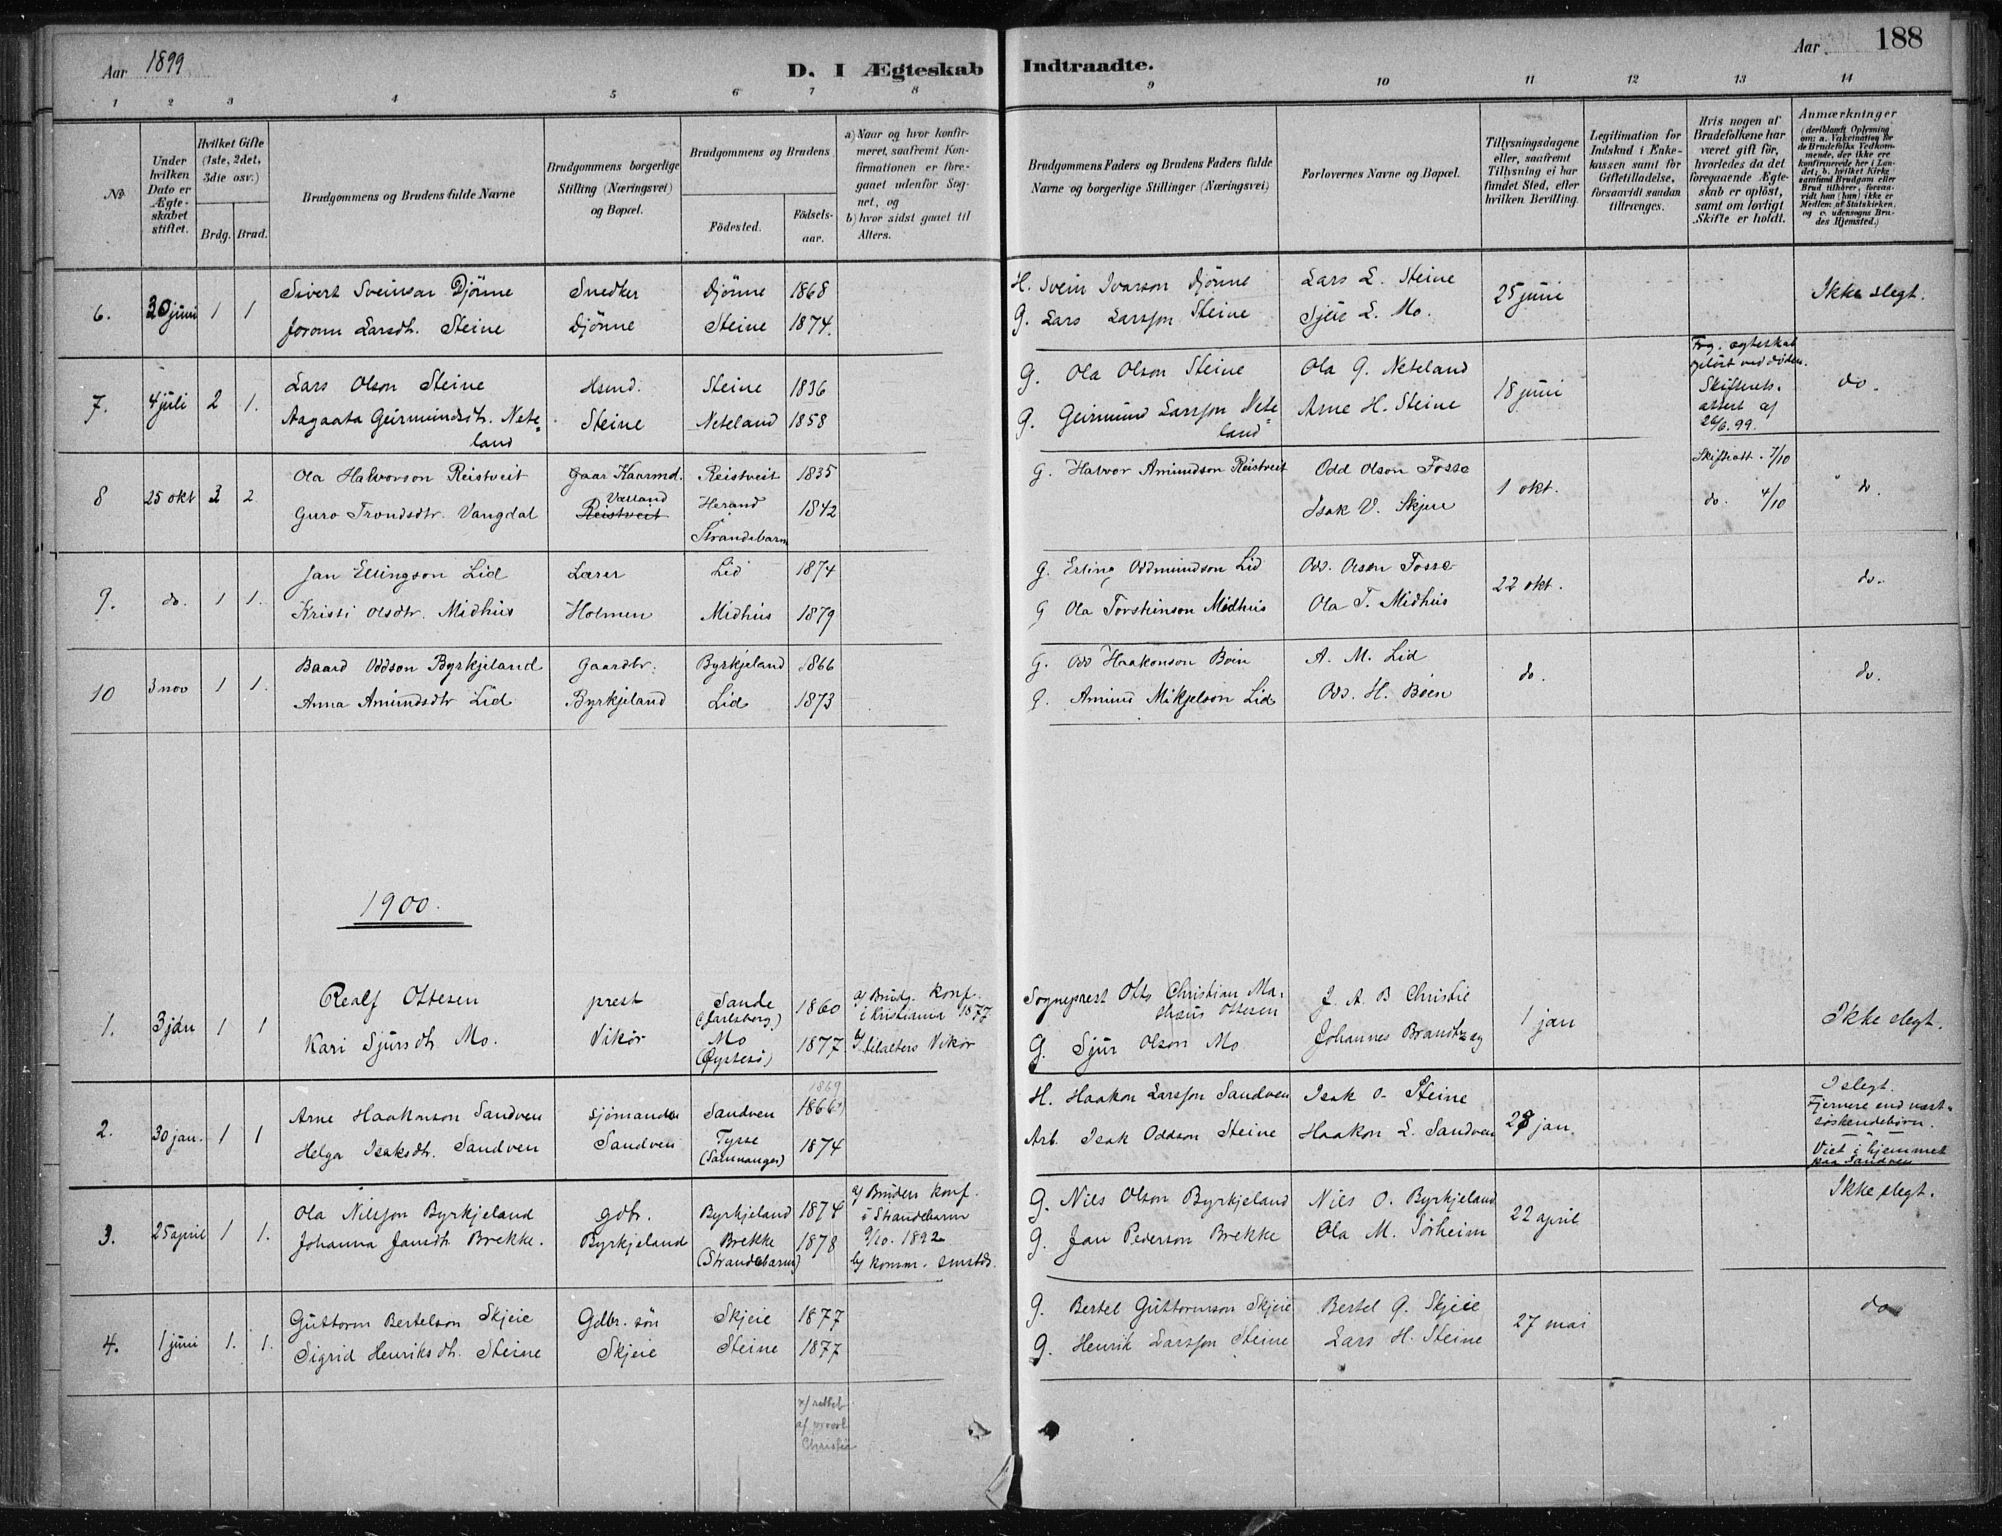 Aar 1899
D. I Ægteskab Indtraadte.
Aar
188
1 2 3 4 5 6 7 8 9 10 11 12 13 14
№
Under hvilken Dato er Ægteskabet stiftet.
Hvilket Gifte (1ste, 2det, 3die osv.)
Brdg. Brud.
Brudgommens og Brudens fulde Navne
Brudgommens borgerlige Stilling (Næringsvei) og Bopæl.
Brudgommens og Brudens
Födested.
Födsels-aar.
a) Naar og hvor konfirmeret, saafremt Konfirmationen er foregaaet udenfor Sognet, og
b) hvor sidst gaaet til Alters.
Brudgommens Faders og Brudens Faders fulde Navne og borgerlige Stillinger (Næringsvei)
Forlovernes Navne og Bopæl.
Tillysningsdagene eller, saafremt Tillysning ei har fundet Sted, efter hvilken Bevilling.
Legitimation for Indskud i Enkekassen samt for Giftetilladelse, forsaavidt saadan tiltrænges.
Hvis nogen af Brudefolkene har været gift för, hvorledes da det foregaaende Ægteskab er oplöst, samt om lovligt Skifte er holdt.
Anmærkninger
(deriblandt Oplysning om: a. Vakcination for de Brudefolks Vedkommende, der ikke ere konfirmerede her i Landet; b. hvilket Kirkesamfund Brudgom eller Brud tilhörer, forsaavidt han (hun) ikke er Medlem af Statskirken, og c. udensogns Brudes Hjemsted.)
6. 30 juni 1 1 Sivert Sveinson Djönne Snedker Djönne 1868 H. Svein Ivarson Djönne Lars L. Steine 25 juni Ikke slegt.
Joronn Larsdt. Steine Djönne Steine 1874. G. Lars Larsson Steine Sjur L. Mo.
7. 4 juli 2 1. Lars Olson Steine Hsmd. Steine 1836 G. Ola Olson Steine Ola G. Neteland 18 juni Fog. egteskab oplöst ved döden. do.
Aagaata Geirmundsdt. Neteland Steine Neteland 1858 G. Geirmund Larsson Neteland Arne H. Steine Skifterets-attest af 26/6. 99.
8 25 okt 3 2. Ola Halvorson Reistveit Gaar Kaarmd. Reistveit 1835 G. Halvor Amundson Reistveit Odd Olson Fosse 1 okt. Skifteatt. 7/10 do.
Guro Trondsdtr. Vangdal Reistveit Herand Strandebarm 1842 Isak V. Skjeie do. 4/10
9. do. 1 1. Jan Ellingson Lid Lærer Lid 1874 G. Erling Oddmundson Lid Odd. Olson Fosse 22 okt. do.
Kristi Olsdtr. Midhus Holmen Midhus 1879 G Ola Torsteinson Midhus Ola T. Midhus
10 3 nov 1 1. Baard Oddson Byrkjeland Gaardbr. Byrkjeland 1866 G. Odd Haakonson Böin A. M. Lid do. do.
Anna Amundsdtr Lid Byrkjeland Lid 1873 G. Amund Mikjelson Lid Odd. H. Böen
1900.
1. 3 jan 1 1 Realf Ottesen prest Sande (Jarlsberg.) 1860 a/ Brudg. konf. i Kristiania 1877 Sogneprest Otto Christian Mathæus Ottesen J. A B Christie 1 jan Ikke slegt.
Kari Sjursdt. Mo. Vikör Mo (Öystesö) 1877. b/ tilalters Vikör G. Sjur Olson Mo Johannes Brandtzæg
2. 30 jan. 1 1 Arne Haakonson Sandven Sjömand Sandven 1869 1866 H. Haakon Larsson Sandven Isak O. Steine 28 jan. I slegt. Fjernere end næst-söskendebörn.
Helga Isaksdt. Sandven Sandven Tysse (Samnanger) 1874 Arb. Isak Oddson Steine Haakon L. Sandven Viet i hjemmet paa Sandven
3. 25 april 1 1. Ola Nilsson Byrkjeland gdbr. Byrkjeland 1874 a/ Bruden konf. i Strandebarm 9/10. 1892 G. Nils Olson Byrkjeland Nils O. Byrkjeland 22 april Ikke slegt.
Johanna Jansdt. Brekke. Byrkjeland Brekke (Strandebarm) 1878 b/ komm. smstds. G. Jan Pederson Brekke Ola M. Sörheim
4. 1 juni 1. 1. Guttorm Bertelson Skjeie Gdbr. sön Skjeie 1877 G. Bertel Guttormson Skjeie Bertel G. Skjeie 27 mai do
Sigrid Henriksdt. Steine Skjeie Steine 1877 G. Henrik Larsson Steine Lars H. Steine
x/ rettet
af provst
Christie